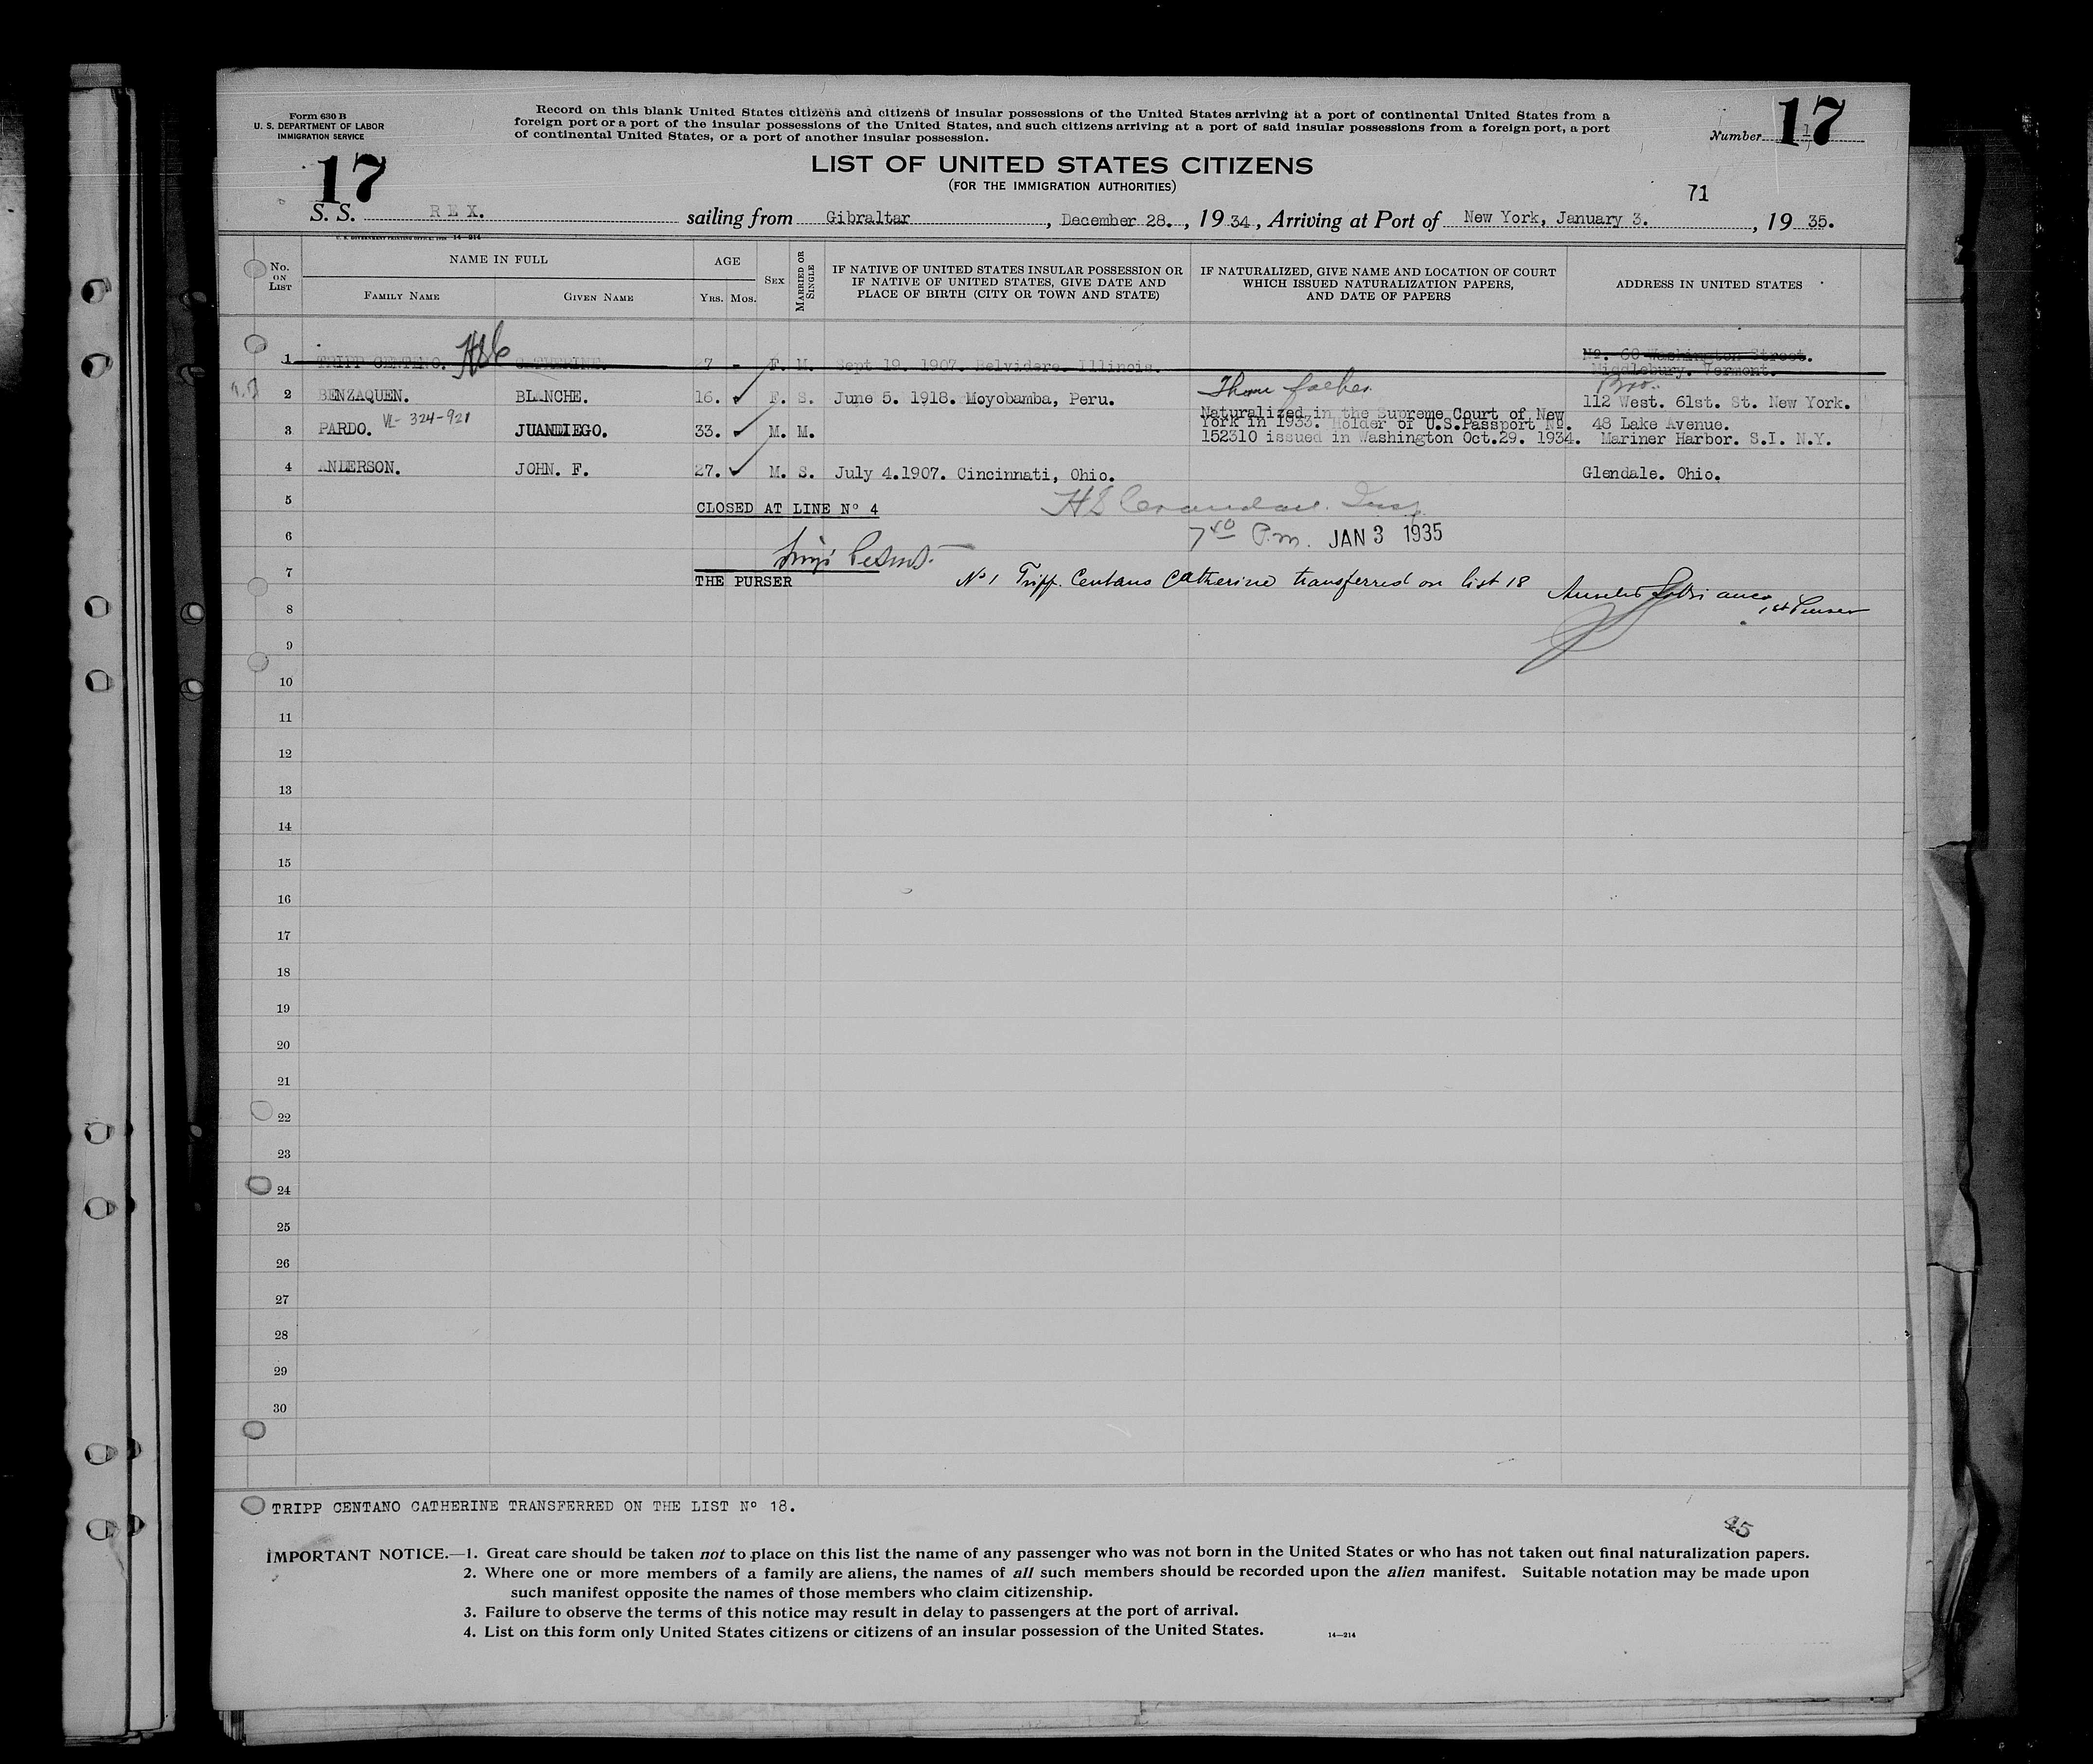 Form 630 B
U. S. DEPARTMENT OF LABOR
IMMIGRATION SERVICE
Record on this blank United States citizens and citizens of insular possessions of the United States arriving at a port of continental United States from a
foreign port or a port of the insular possessions of the United States, and such citizens arriving at a port of said insular possessions from a foreign port, a port
of continental United States, or a port of another insular possession.
Number 17
17
LIST OF UNITED STATES CITIZENS
(FOR THE IMMIGRATION AUTHORITIES)
71
S. S. REX. sailing from Gibraltar, December 28., 19 34, Arriving at Port of New York, January 3., 19 35.
U. S. GOVERNMENT PRINTING OFFICE 14—214
No. ON LIST
NAME IN FULL
FAMILY NAME GIVEN NAME
AGE
YRS. MOS.
SEX
MARRIED OR SINGLE
IF NATIVE OF UNITED STATES INSULAR POSSESSION OR
IF NATIVE OF UNITED STATES, GIVE DATE AND
PLACE OF BIRTH (CITY OR TOWN AND STATE)
IF NATURALIZED, GIVE NAME AND LOCATION OF COURT
WHICH ISSUED NATURALIZATION PAPERS,
AND DATE OF PAPERS
ADDRESS IN UNITED STATES
1 TRIPP CENTENO. HSC CATHERINE. 27 - F. M. Sept 19. 1907. Belvidere. Illinois. Nº. 60 Washington Street.
Middlebury. Vermont.
2 BENZAQUEN. BLANCHE. 16. F. S. June 5. 1918. Moyobamba, Peru. father Bro. 112 West. 61st. St. New York.
3 PARDO. VL-324-921 JUANDIEGO. 33. M. M. Naturalized in the Supreme Court of New
York in 1933. Holder of U.S.Passport Nº. 48 Lake Avenue.
152310 issued in Washington Oct.29. 1934. Mariner Harbor. S.I. N.Y.
4 ANDERSON. JOHN. F. 27. M. S. July 4.1907. Cincinnati, Ohio. Glendale. Ohio.
5 CLOSED AT LINE Nº 4 H S Crandall. Insp.
6 7 40 P.m. JAN 3 1935
7 THE PURSER Nº 1 Tripp. Centano Catherine transferred on list 18
1st Purser
8
9
10
11
12
13
14
15
16
17
18
19
20
21
22
23
24
25
26
27
28
29
30
TRIPP CENTANO CATHERINE TRANSFERRED ON THE LIST Nº 18.
45
IMPORTANT NOTICE.—1. Great care should be taken not to place on this list the name of any passenger who was not born in the United States or who has not taken out final naturalization papers.
2. Where one or more members of a family are aliens, the names of all such members should be recorded upon the alien manifest. Suitable notation may be made upon
such manifest opposite the names of those members who claim citizenship.
3. Failure to observe the terms of this notice may result in delay to passengers at the port of arrival.
4. List on this form only United States citizens or citizens of an insular possession of the United States.
14—214